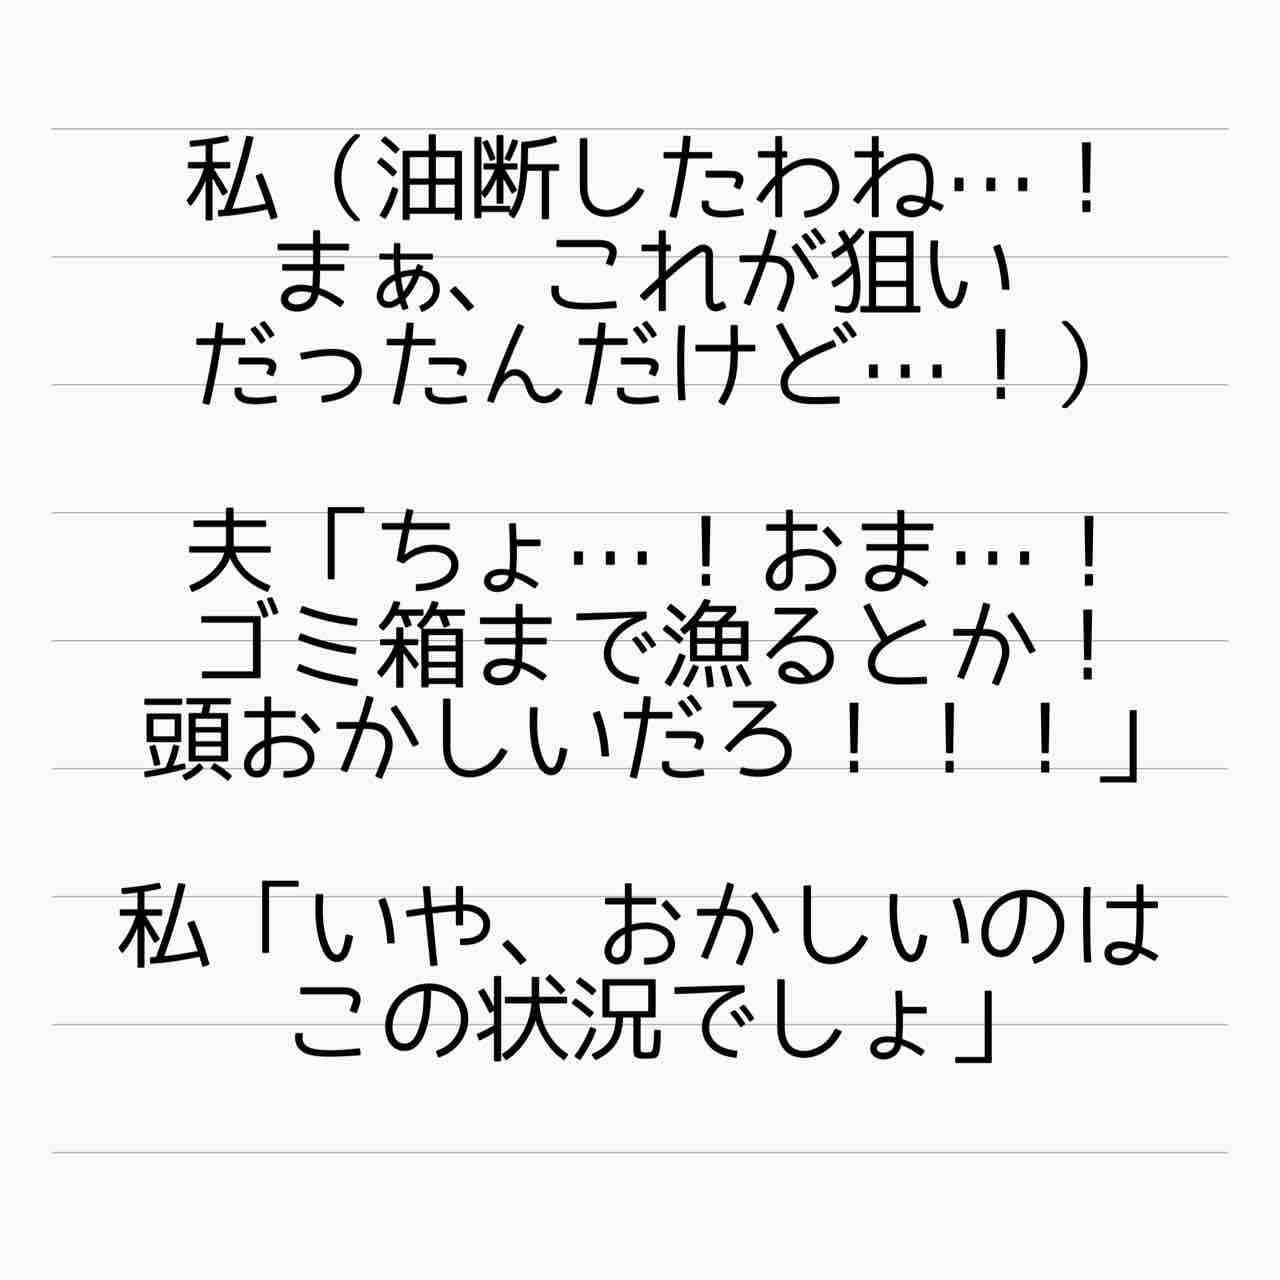 私（油断したわね…！
まぁ、これが狙い
だったんだけど…！）
夫「ちょ…！おま…！
ゴミ箱まで漁るとか！
頭おかしいだろ！！！」
私「いや、おかしいのは
この状況でしょ」